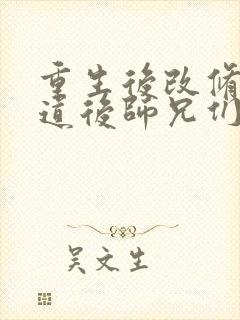 重生後改修
道後師兄们
吴文生